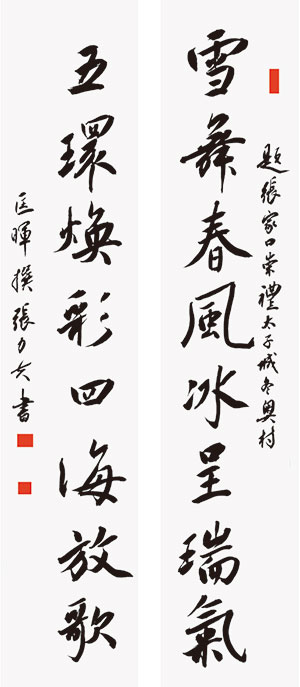 題張家口崇禮太子城冬奥村
雪舞春風冰呈瑞氣
五環煥彩四海放歌
匡暉撰張力兵書